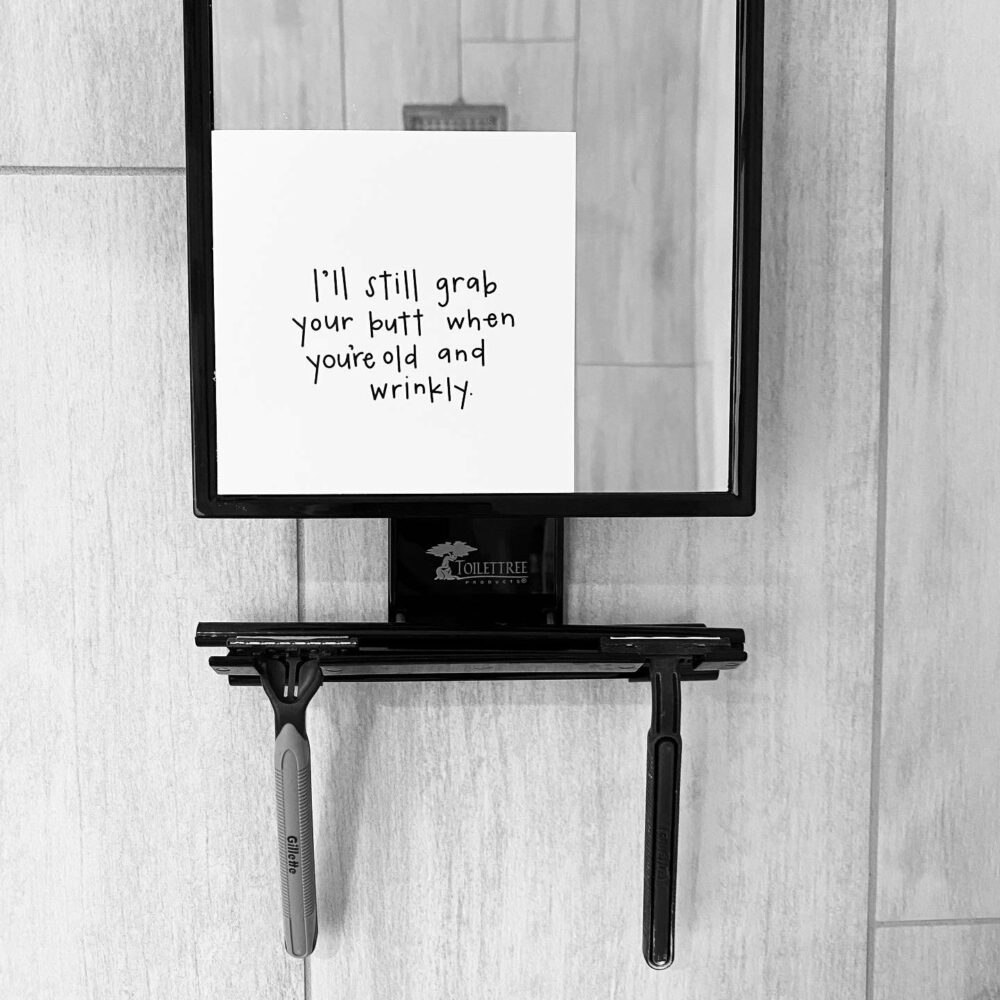 I'll still grab
your butt when
you're old and
wrinkly.
TOILETTREE
PRODUCTS®
Gillette